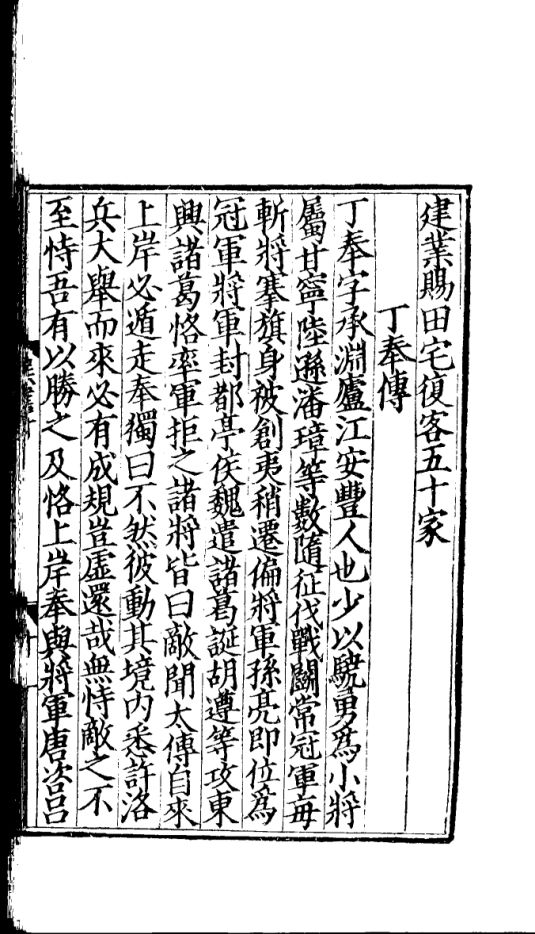 建業賜田宅復客五十家
丁奉傳
丁奉字承淵廬江安豐人也少以驍勇為小將
屬甘寧陸遜潘璋等數隨征伐戰鬬常冠軍每
斬將搴旗身被創夷稍遷偏將軍孫亮即位為
冠軍將軍封都亭侯魏遣諸葛誕胡遵等攻東
興諸葛恪率軍拒之諸將皆曰敵聞太傅自來
上岸必遁走奉獨曰不然彼動其境內悉許洛
兵大舉而來必有成規豈虛還哉無恃敵之不
至恃吾有以勝之及恪上岸奉與將軍唐咨呂